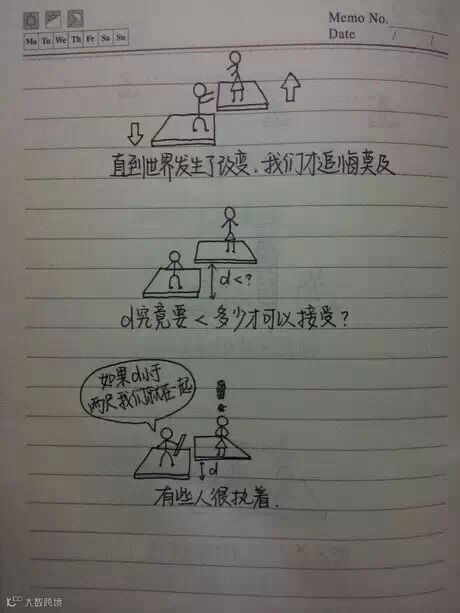 Memo No.
Mo Tu We Th Fr Sa Su
Date / /
直到世界发生了改变，我们才追悔莫及
d<?
d究竟要<多少才可以接受？
如果d小于
两尺我们就在一起
d
有些人很执着.
大数跨境